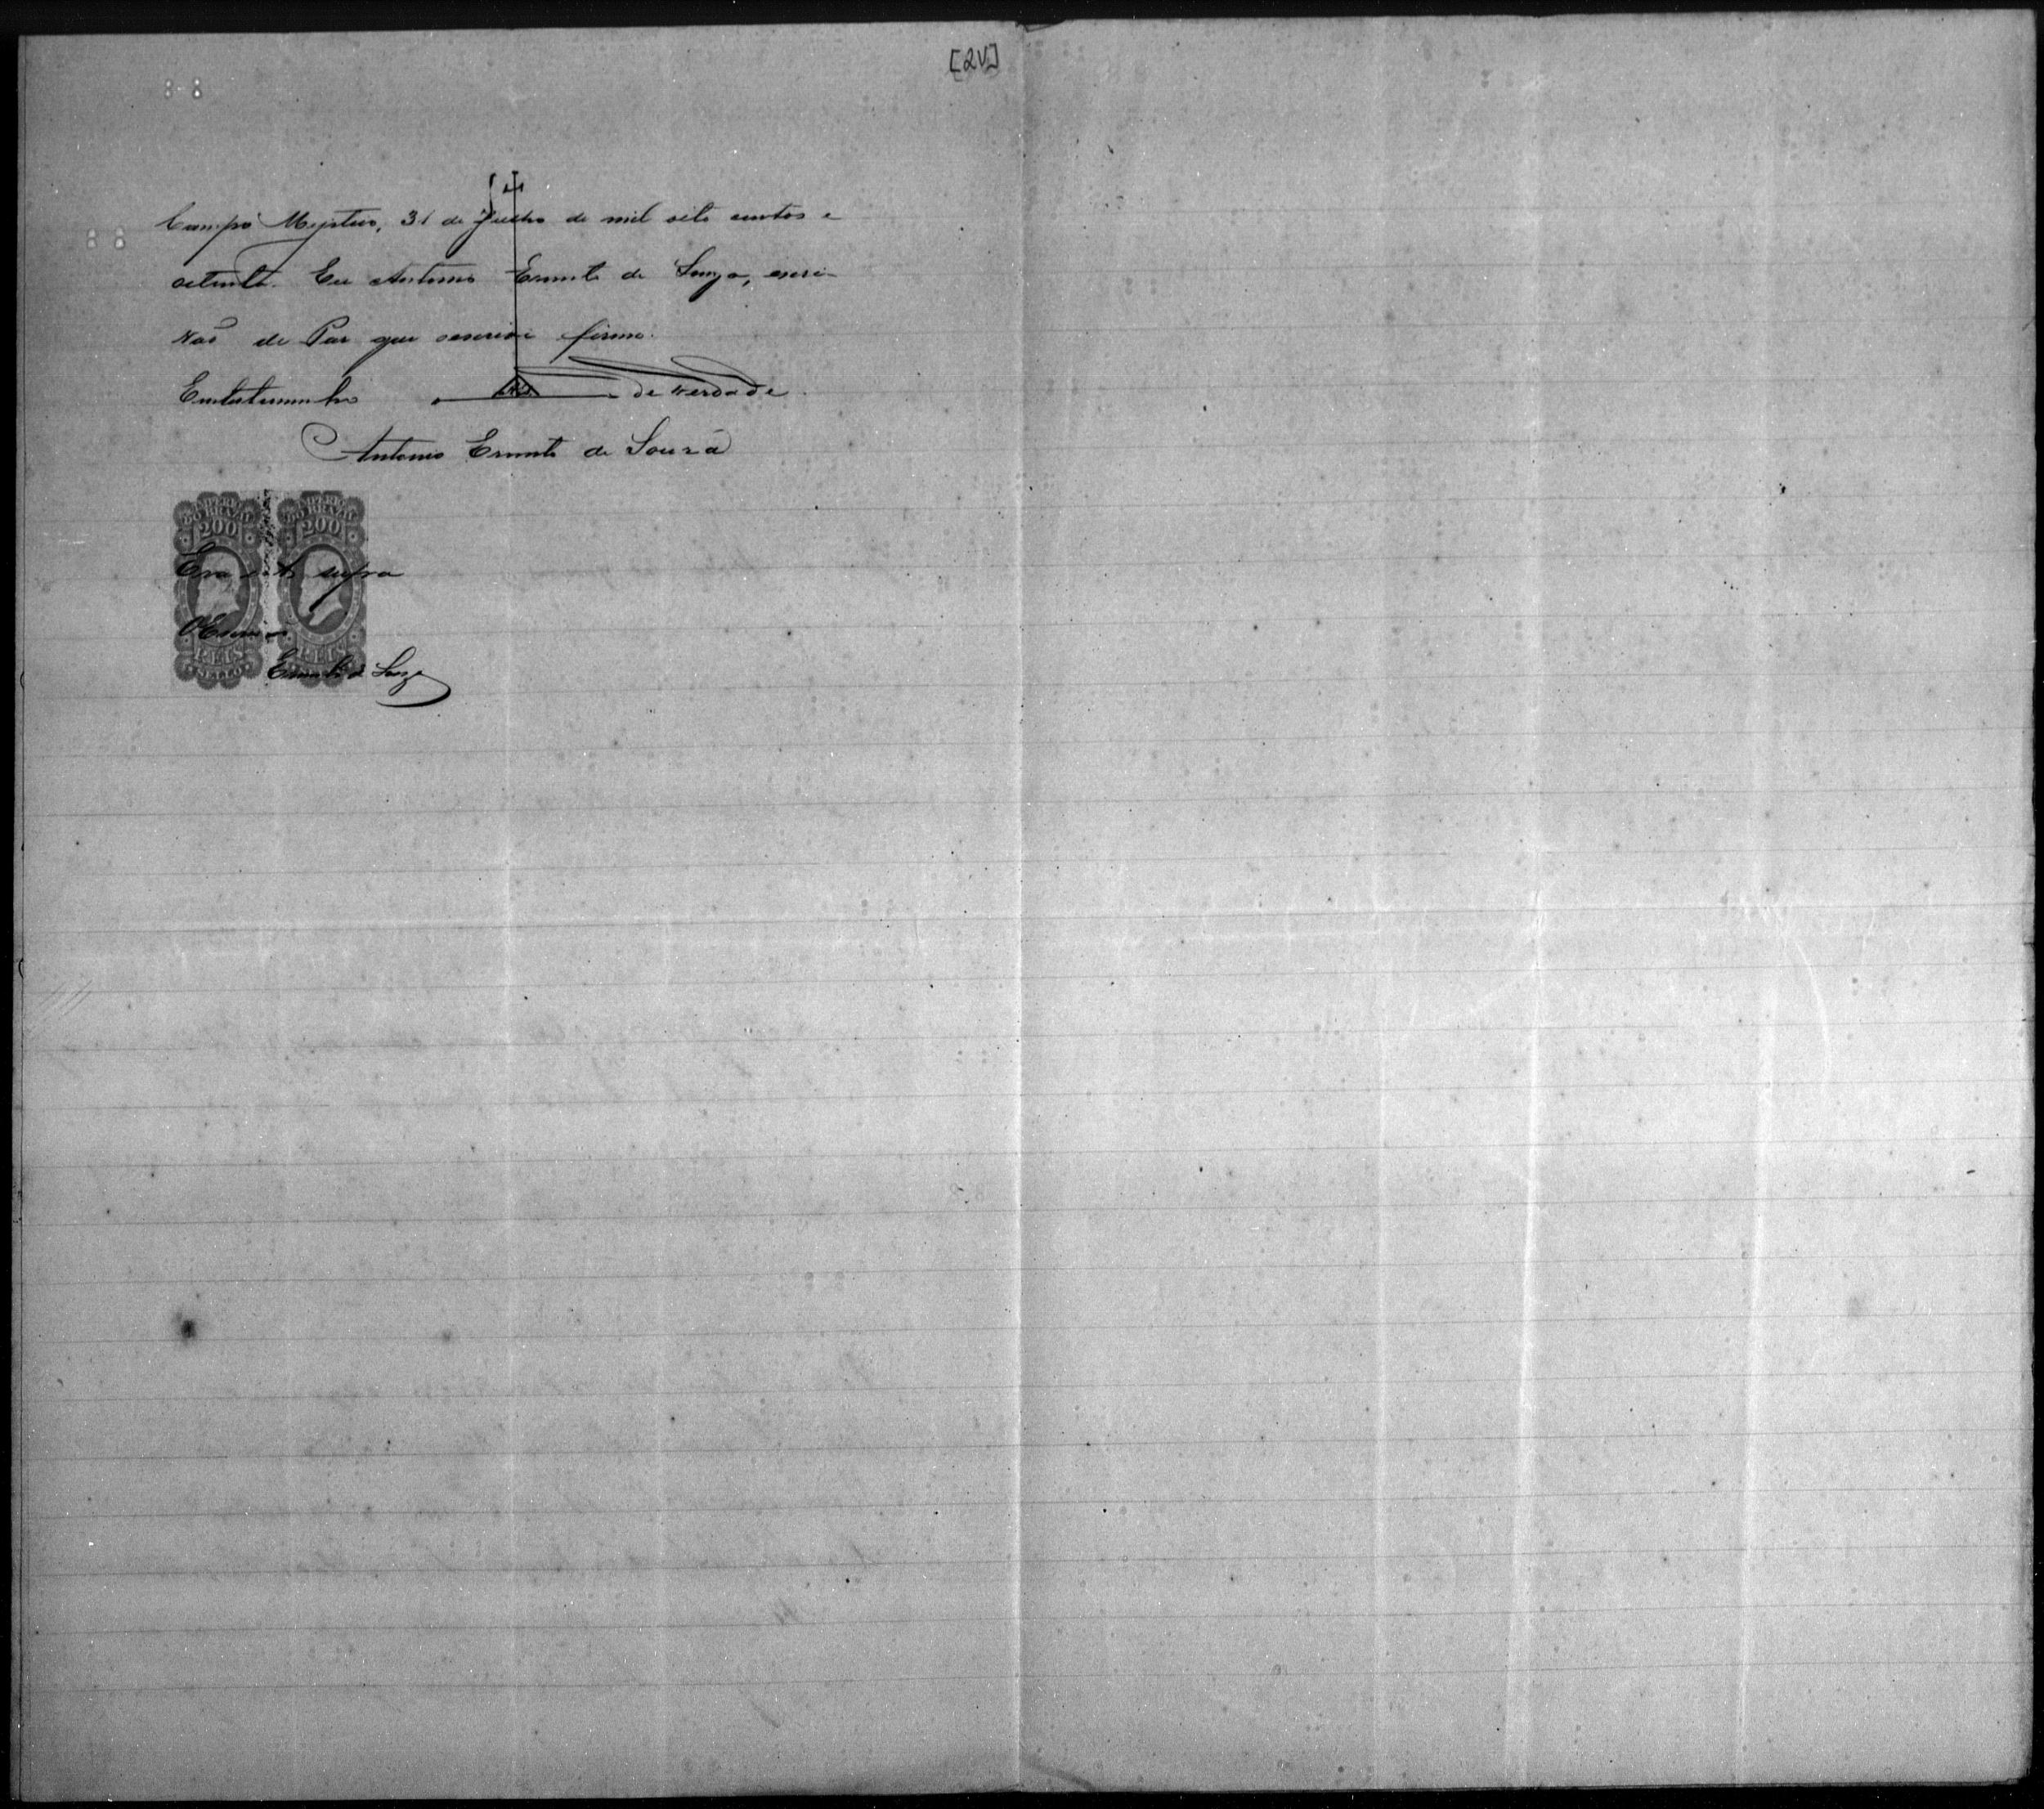 [2V]
Campo Mystico, 31 de Julho de mil oito centos e
oitenta. Eu Antonio Ernesto de Souza, escri-
vaõ de Paz que escrevi e firmo.
Em testemunho de verdade.
Antonio Ernesto de Souza
IMPERIO DO BRAZIL IMPERIO DO BRAZIL
200 200
Era ut supra
O Escrivaõ
REIS REIS
SELLO
Ernesto de Souza